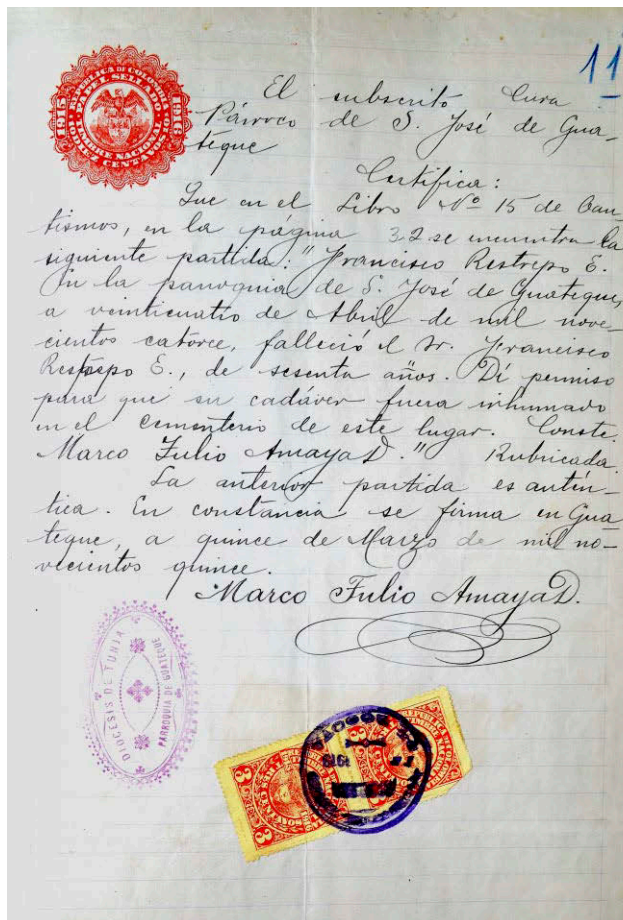 11
REPUBLICA DE COLOMBIA
PAPEL SELLADO
1915 1916
TIMBRE NACIONAL
DIEZ CENTAVOS
El subscrito Cura
Párroco de S. José de Gua-
teque
Certifica:
Que en el Libro Nº 15 de Bau-
tismos, en la página 32 se encuentra la
siguiente partida: "Francisco Restrepo E.
En la parroquia de S. José de Guateque,
a veinticuatro de Abril de mil nove-
cientos catorce, falleció el Sr. Francisco
Restrepo E., de sesenta años. Di permiso
para que su cadáver fuera inhumado
en el cementerio de este lugar. Conste.
Marco Julio Amaya D." Rubricada.
La anterior partida es autén-
tica. En constancia se firma en Gua
teque, a quince de Marzo de mil no-
vecientos quince.
Marco Julio Amaya D.
DIOCESIS DE TUNJA
PARROQUIA DE GUATEQUE
3 3